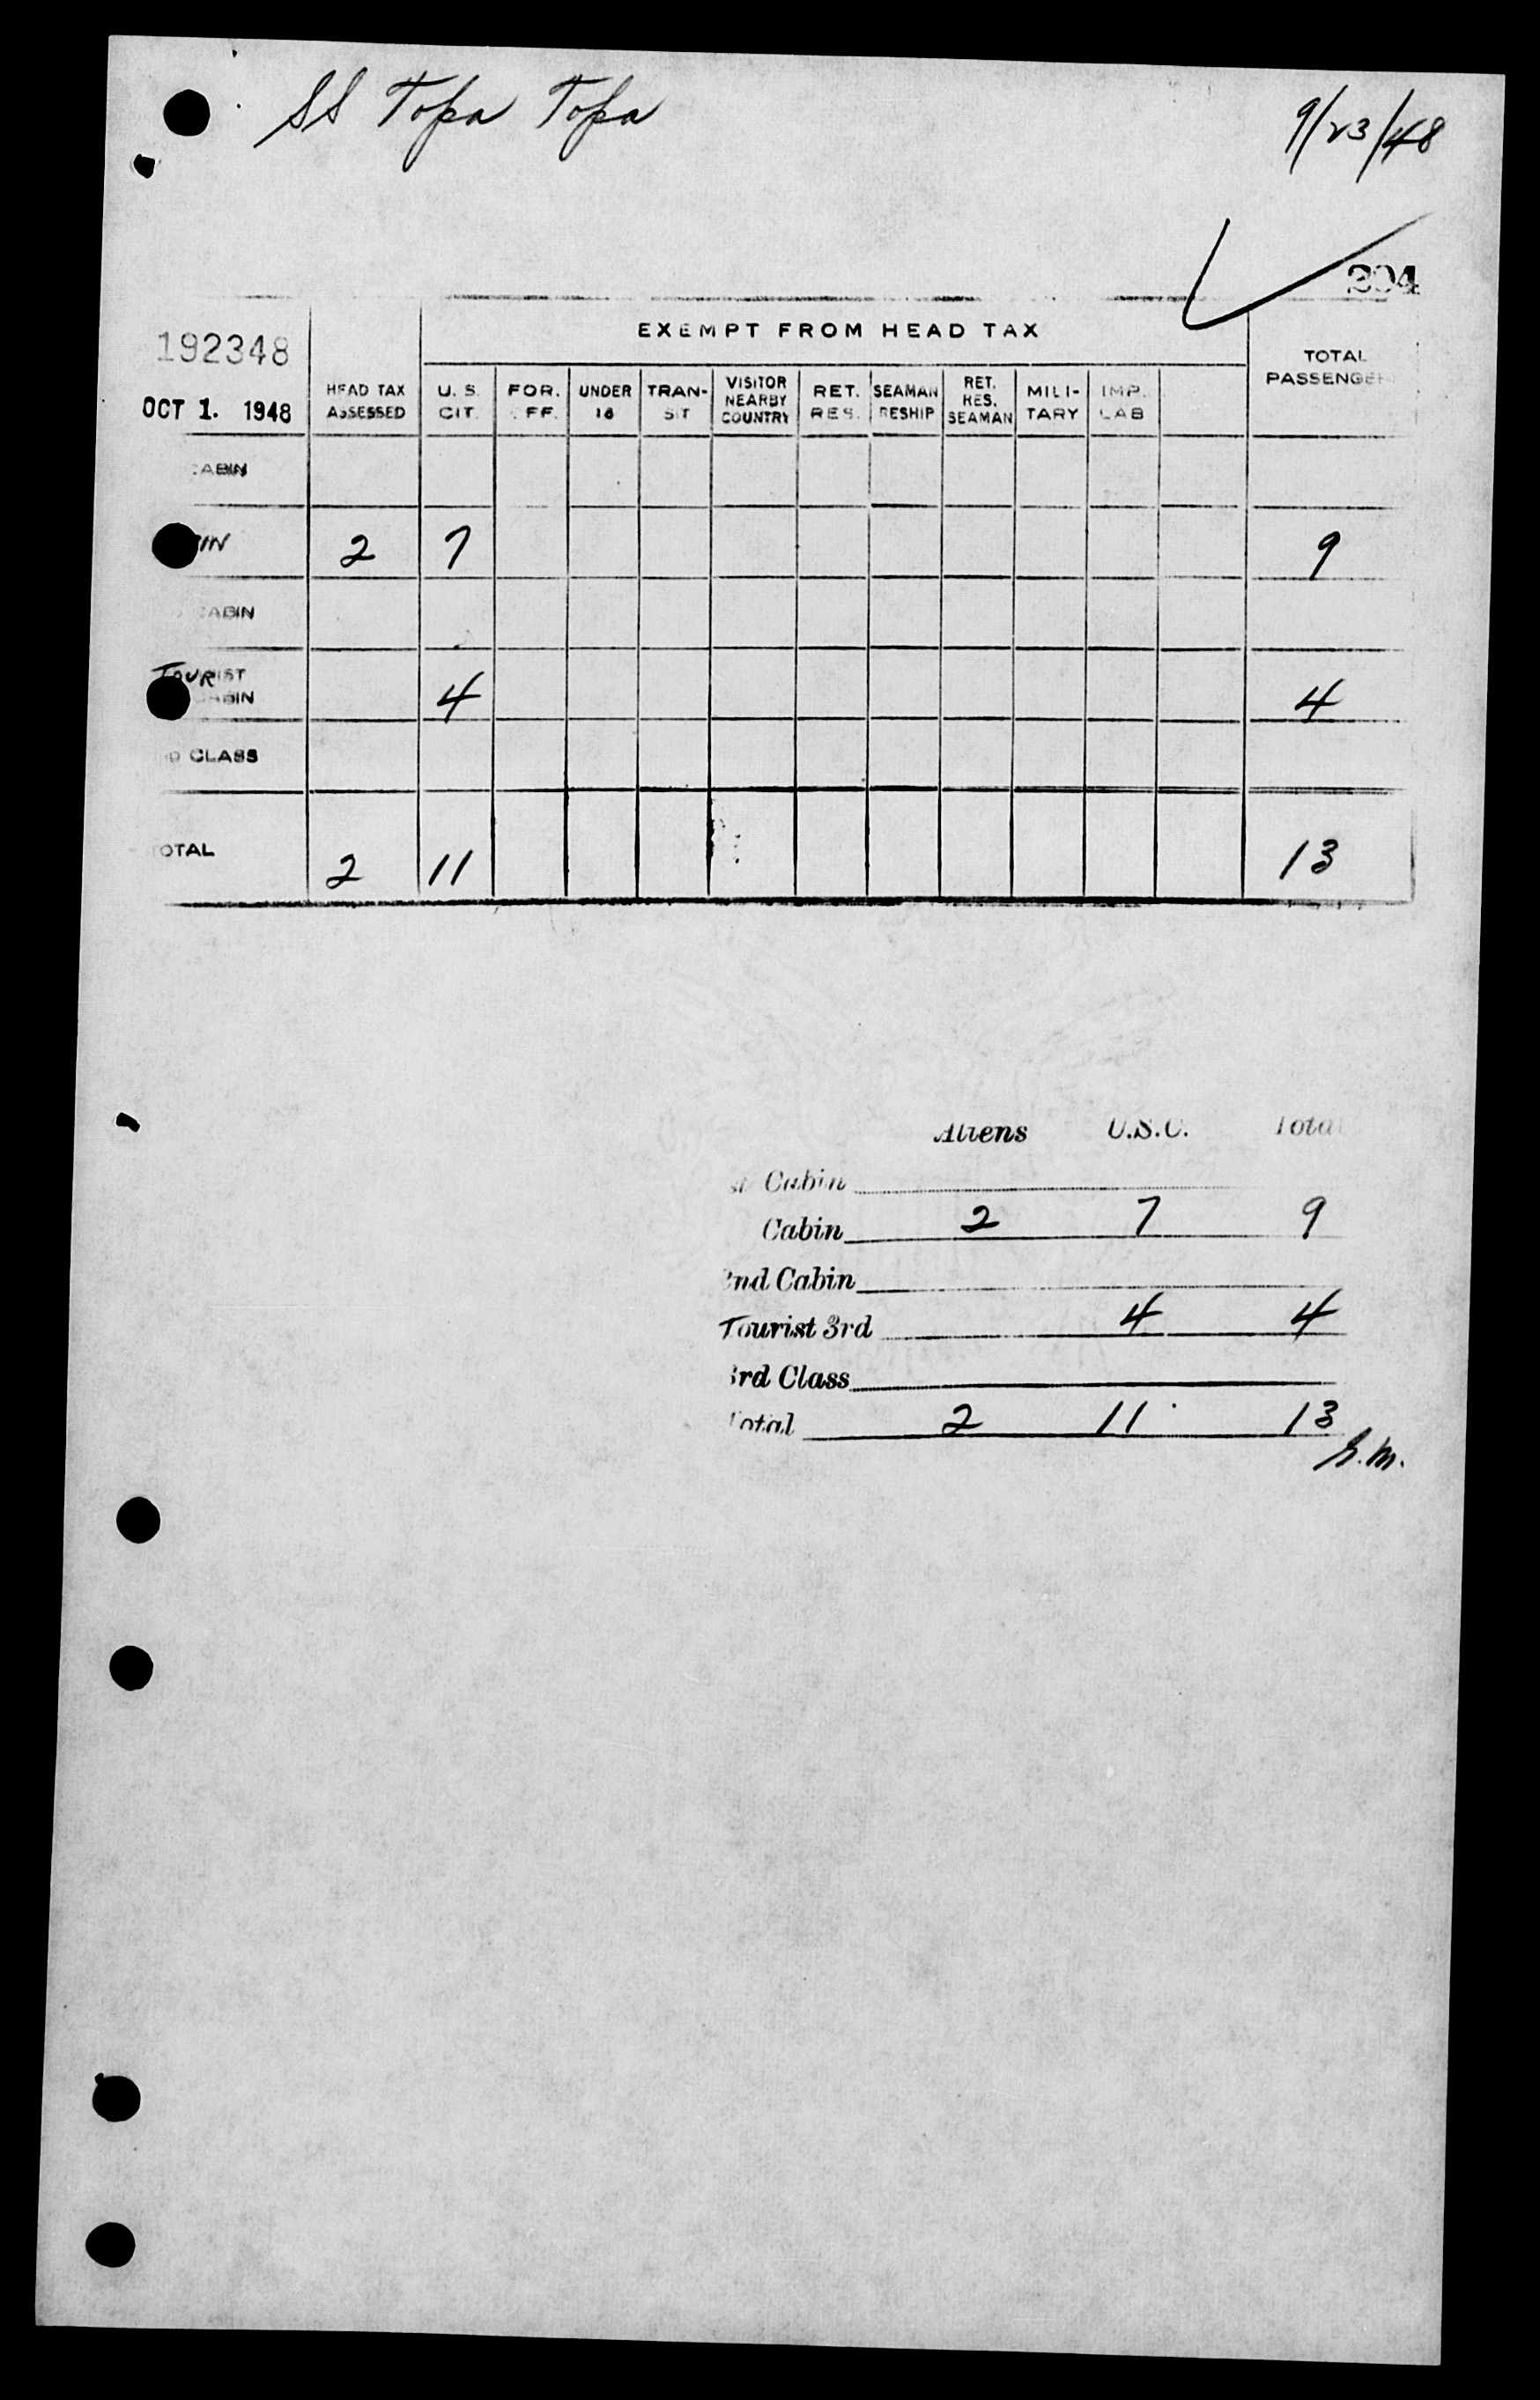 SS Topa Topa
9/23/48
304
EXEMPT FROM HEAD TAX
192348
OCT 1. 1948
HEAD TAX ASSESSED U. S. CIT. FOR. FF. UNDER 16 TRAN- SIT VISITOR NEARBY COUNTRY RET. RES. SEAMAN RESHIP RET. RES. SEAMAN MILI- TARY IMP. LAB TOTAL PASSENGER
CABIN
IN 2 7 9
CABIN
TOURIST
CABIN 4 4
D CLASS
OTAL 2 11 13
Aliens U.S.C. Total
st Cabin
Cabin 2 7 9
2nd Cabin
Tourist 3rd 4 4
3rd Class
Total 2 11 13
S.M.